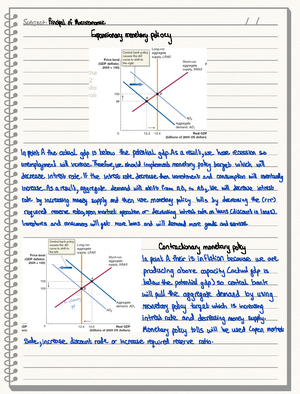 Subject: Principal of Macroeconomic
Expansionary monetary policy
Central bank policy
causes the AD
curve to shift to
the right
Long-run
aggregate
supply, LRAS
Price level
(GDP deflator,
2009 = 100)
Short-run
aggregate
supply, SRAS
Aggregate
demand, AD₁
Real GDP
(trillions of 2009 US dollars)
In point A the actual gdp is below the potential gdp. As a result, we have recession so
unemployment will increase. Therefore, we should implements monetary policy target which will
decrease intrest rate. If the intrest rate decrease then investment and consumption will eventually
increase. As a result, aggregate demand will shift from AD₁ to AD₂. We will decrease intrest
rate by increasing money supply and then use monetary policy tolls by decreasing the (rrr)
required reserve ratio, open market operation or decreasing intrest rate on loans (discount in loans).
Investors and consumers will get more loans and will demand more goods and services.
Contractionary monetary policy
Central bank policy
causes the AD
curve to shift to
the left
Long-run
aggregate
supply, LRAS
Price level
(GDP deflator,
2009 = 100)
Short-run
aggregate
supply, SRAS
Aggregate
demand, AD₂
Real GDP
(trillions of 2009 US dollars)
In point A their is inflation because we are
producing above capacity (actual gdp is
below the potential gdp) so central bank
will pull the aggregate demand by using
monetary policy target which is increasing
intrest rate and decreasing money supply.
Monetary policy tolls will be used (open market
Sale, increase discount rate or increase required reserve ratio.